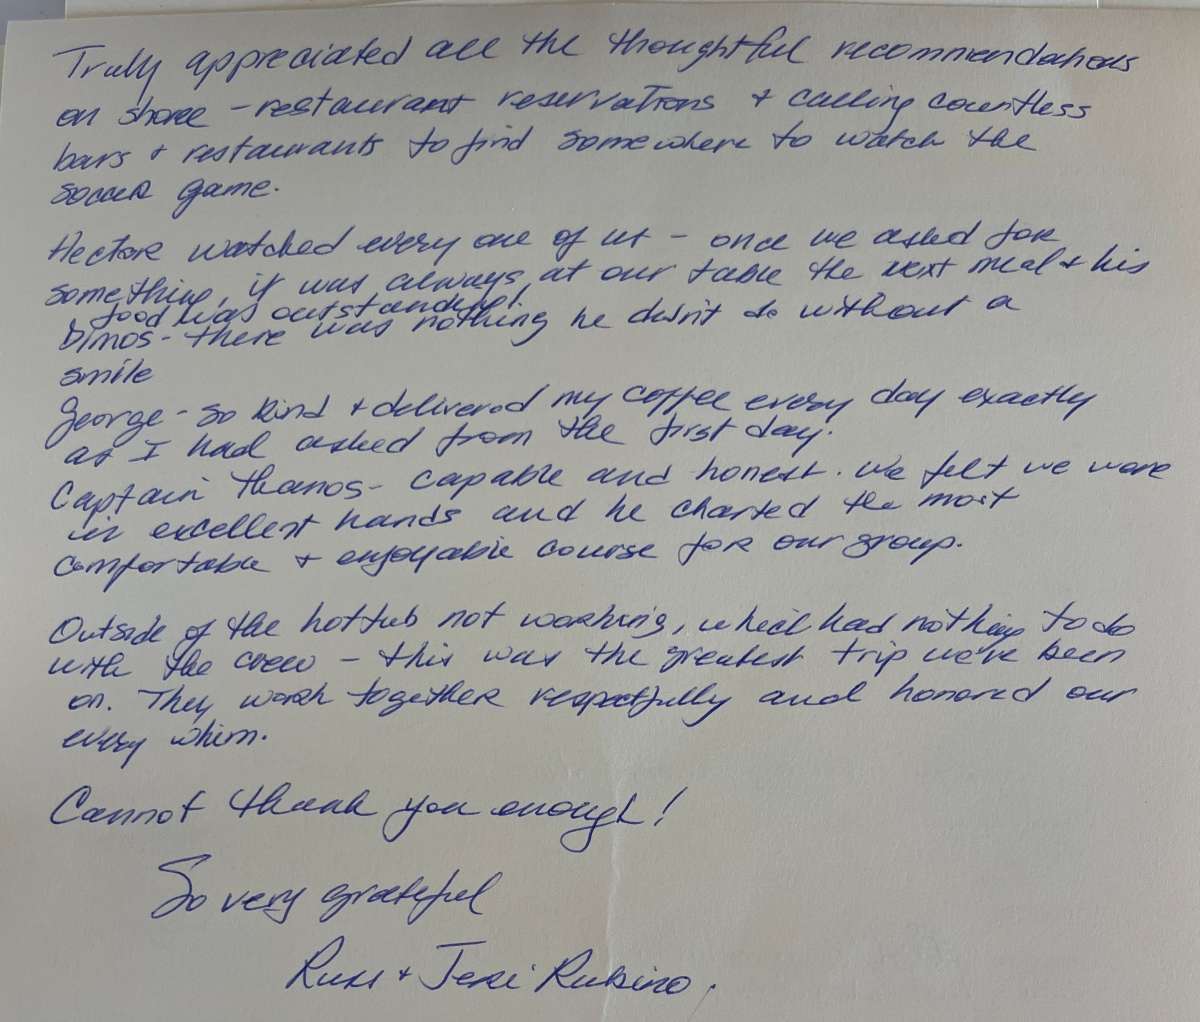 Truly appreciated all the thoughtful recommendations
on shore - restaurant reservations + calling countless
bars + restaurants to find somewhere to watch the
soccer game.
Hector watched every one of us - once we asked for
something, it was always at our table the next meal + his
food was outstanding!
Dimos - there was nothing he didn't do without a
smile
George - so kind + delivered my coffee every day exactly
as I had asked from the first day.
Captain Thanos - capable and honest. We felt we were
in excellent hands and he charted the most
comfortable + enjoyable course for our group.
Outside of the hottub not working, which had nothing to do
with the crew - this was the greatest trip we've been
on. They work together respectfully and honored our
every whim.
Cannot thank you enough!
So very grateful
Russ + Jeri Rubino.